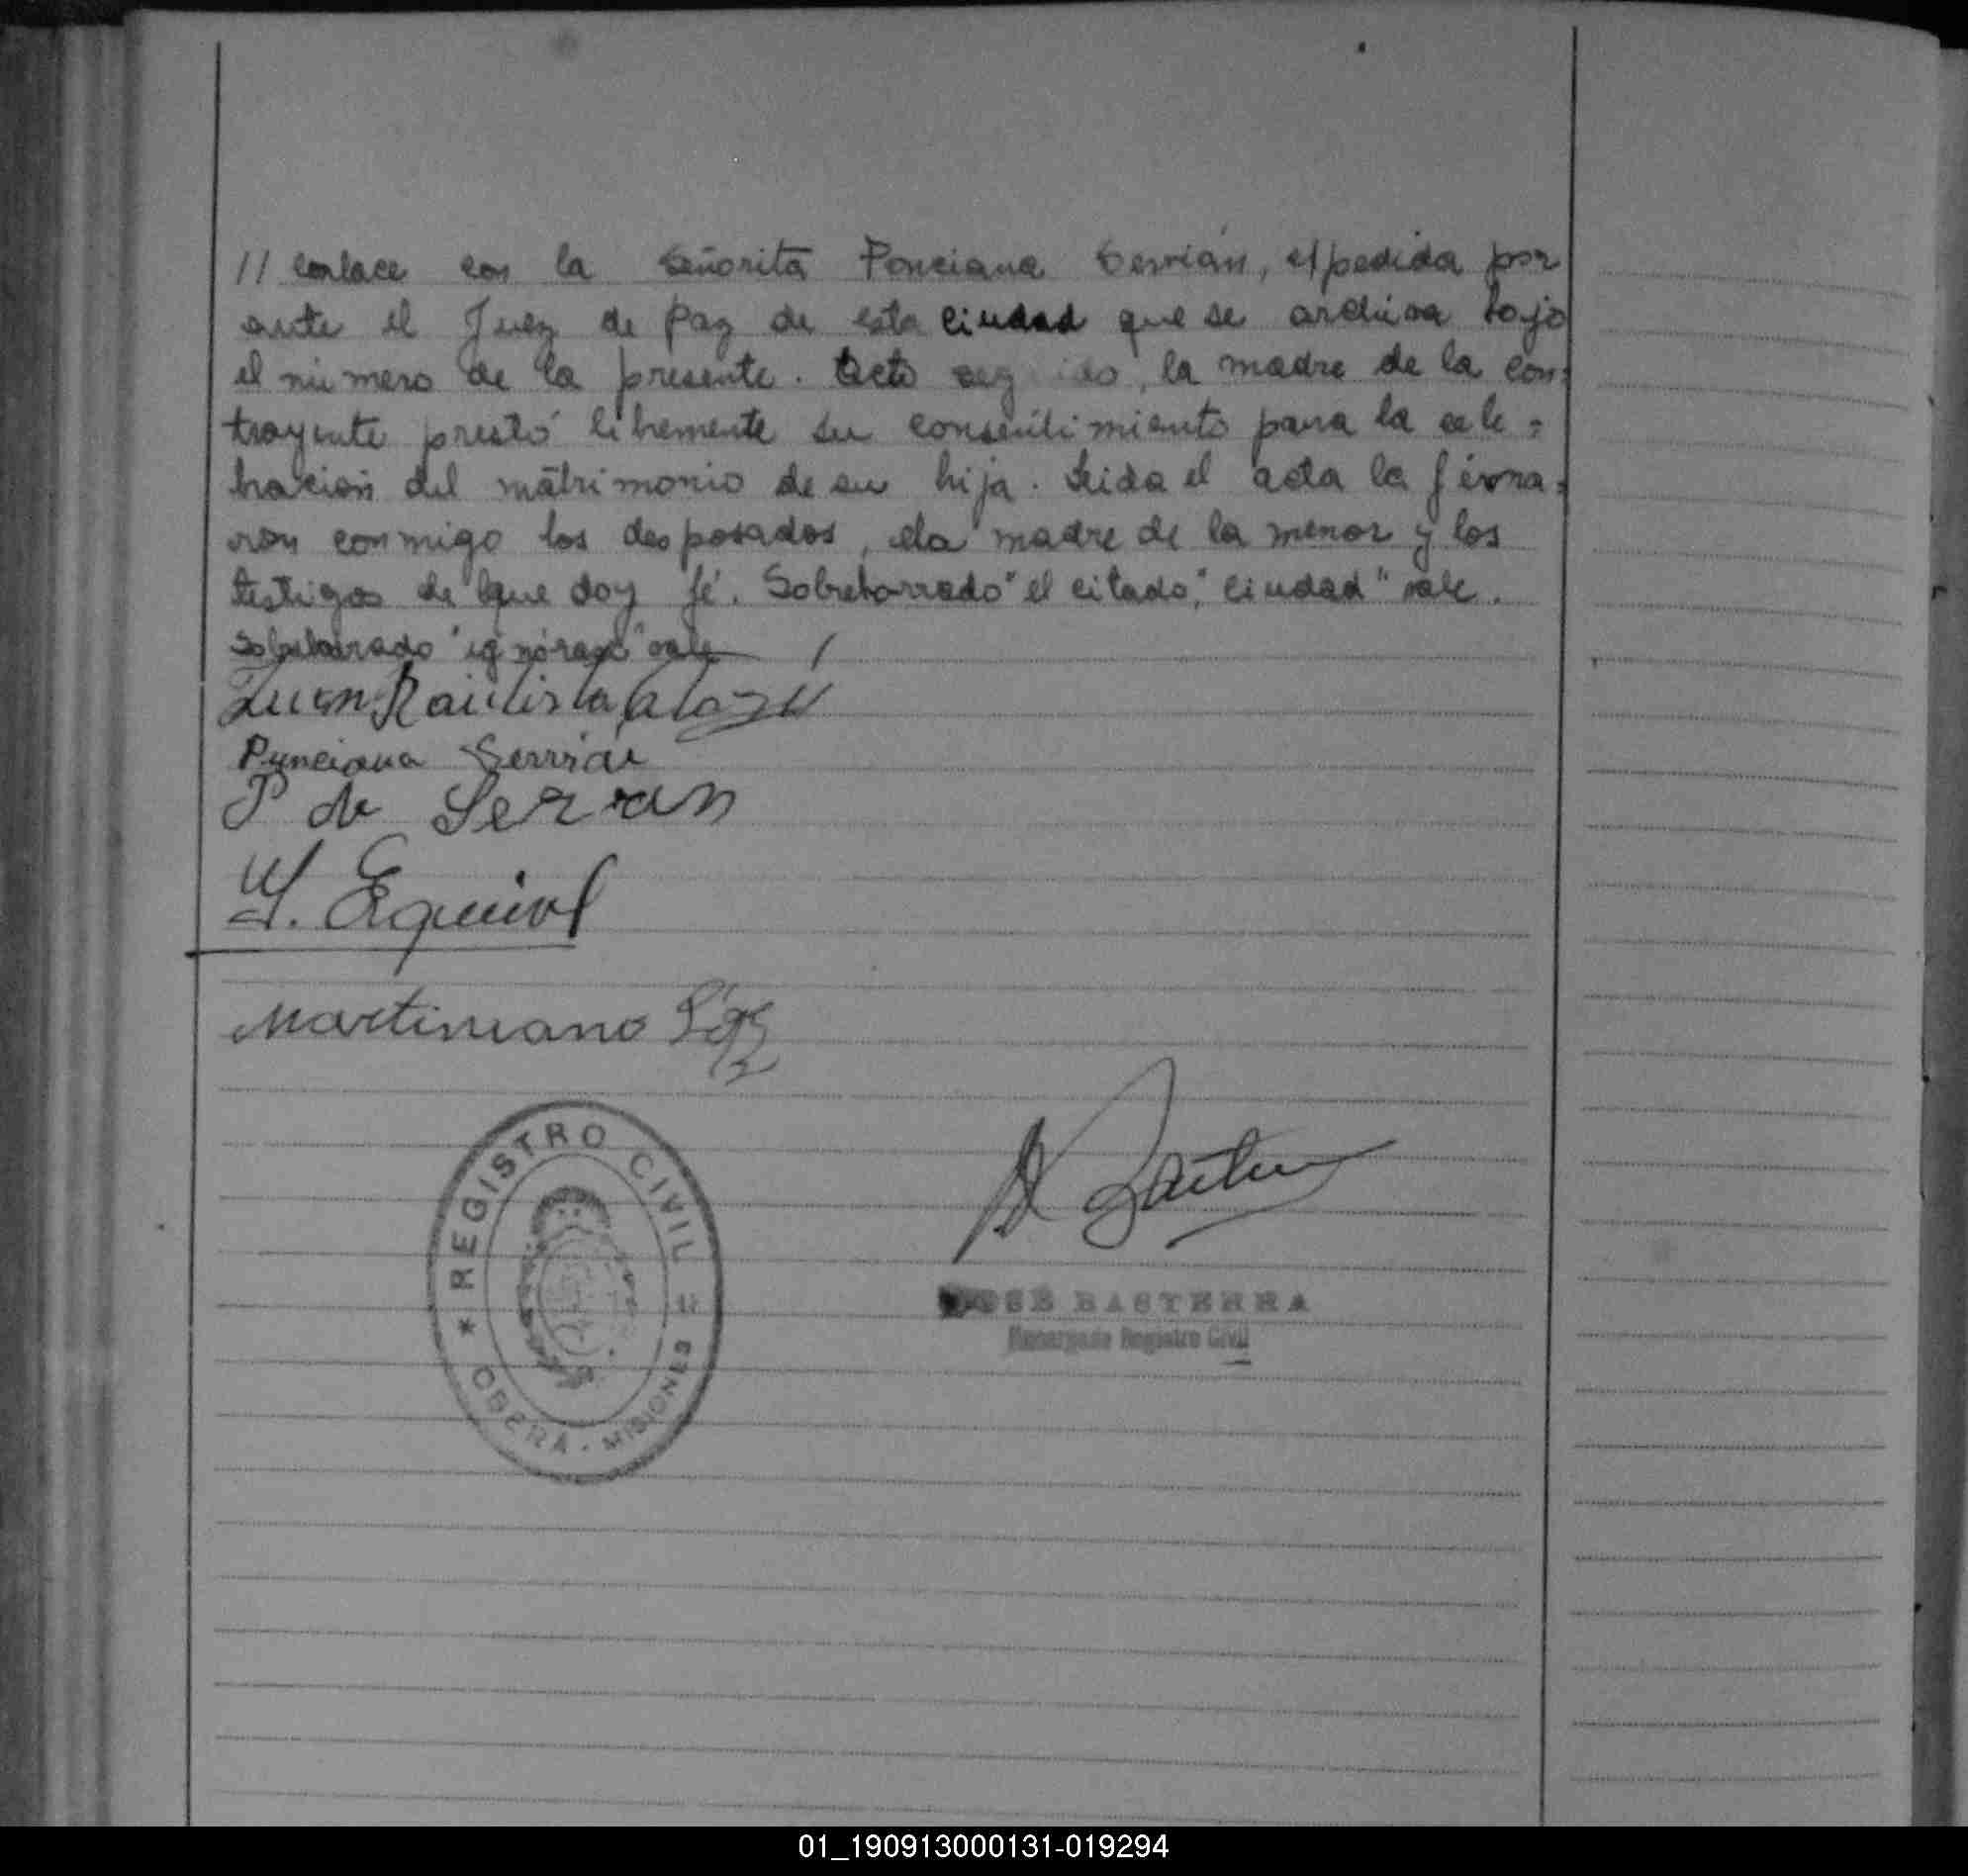 // enlace con la Señorita Ponciana Servián, expedida por
ante el Juez de Paz de esta ciudad que se archiva bajo
el número de la presente. Acto seguido, la madre de la con=
trayente prestó libremente su consentimiento para la cele=
bración del matrimonio de su hija. Leida el acta la firma=
ron conmigo los desposados, la madre de la menor y los
testigos de que doy fé. Sobreborrado "el citado", "ciudad" vale.
Sobreborrado "ignórase" vale
Juan Bautista
Punciana Servián
P de Servan
Martiniano
REGISTRO CIVIL
OBERA - MISIONES
JOSE BASTERRA
Encargado Registro Civil
01_190913000131-019294